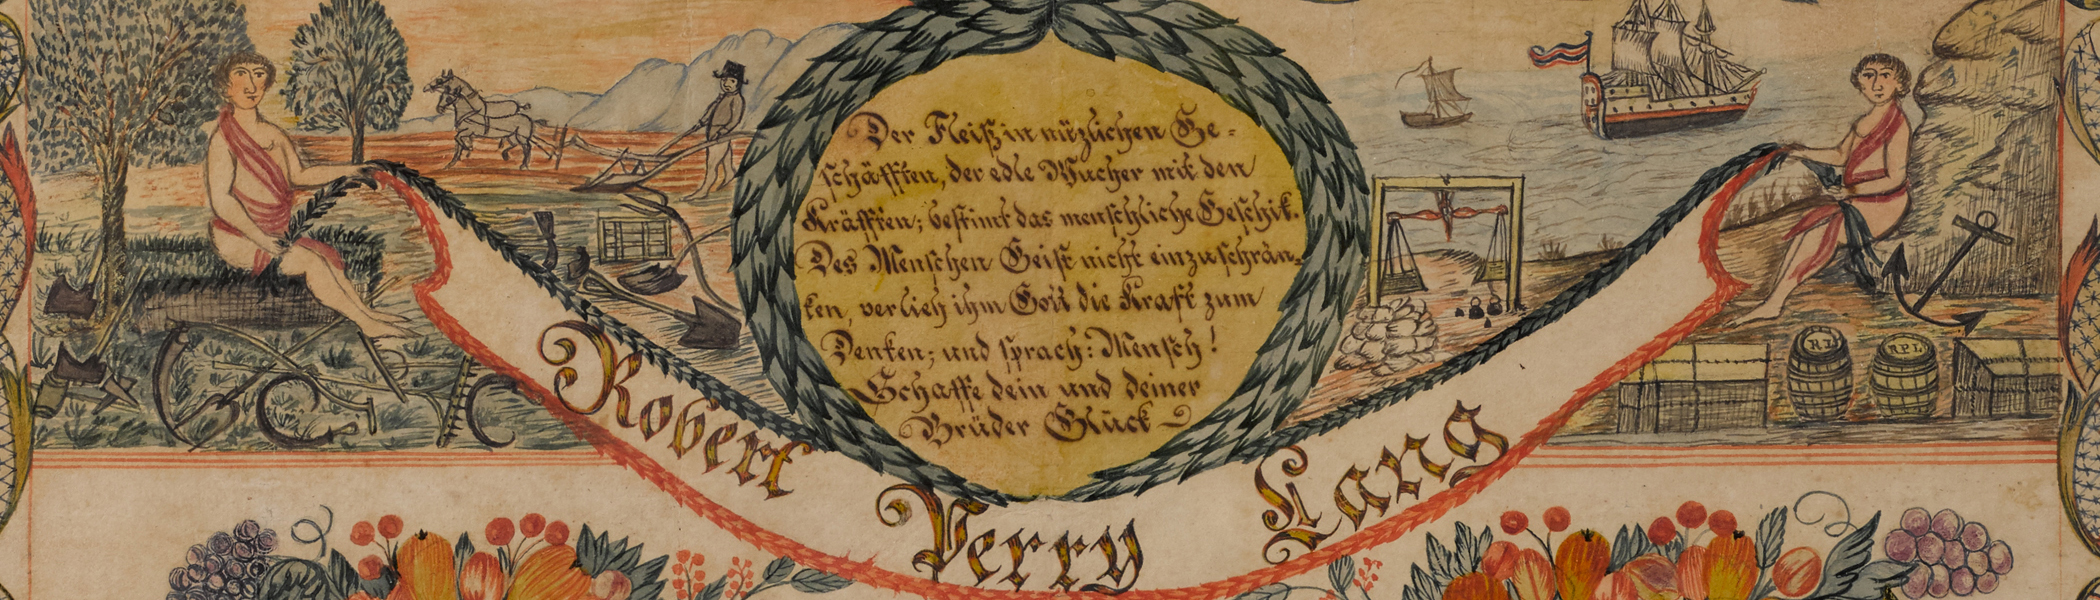 Der Fleiß in nüzlichen Ge-
schäfften, der edle Wucher mit den
Kräfften; bestimt das menschliche Geschik.
Des Menschen Geist nicht einzuschrän-
ken, verlieh ihm Gott die Kraft zum
Denken; und sprach: Mensch!
Schaffe dein und deiner
Brüder Glück
Robert Perry Lang
R L
R P L